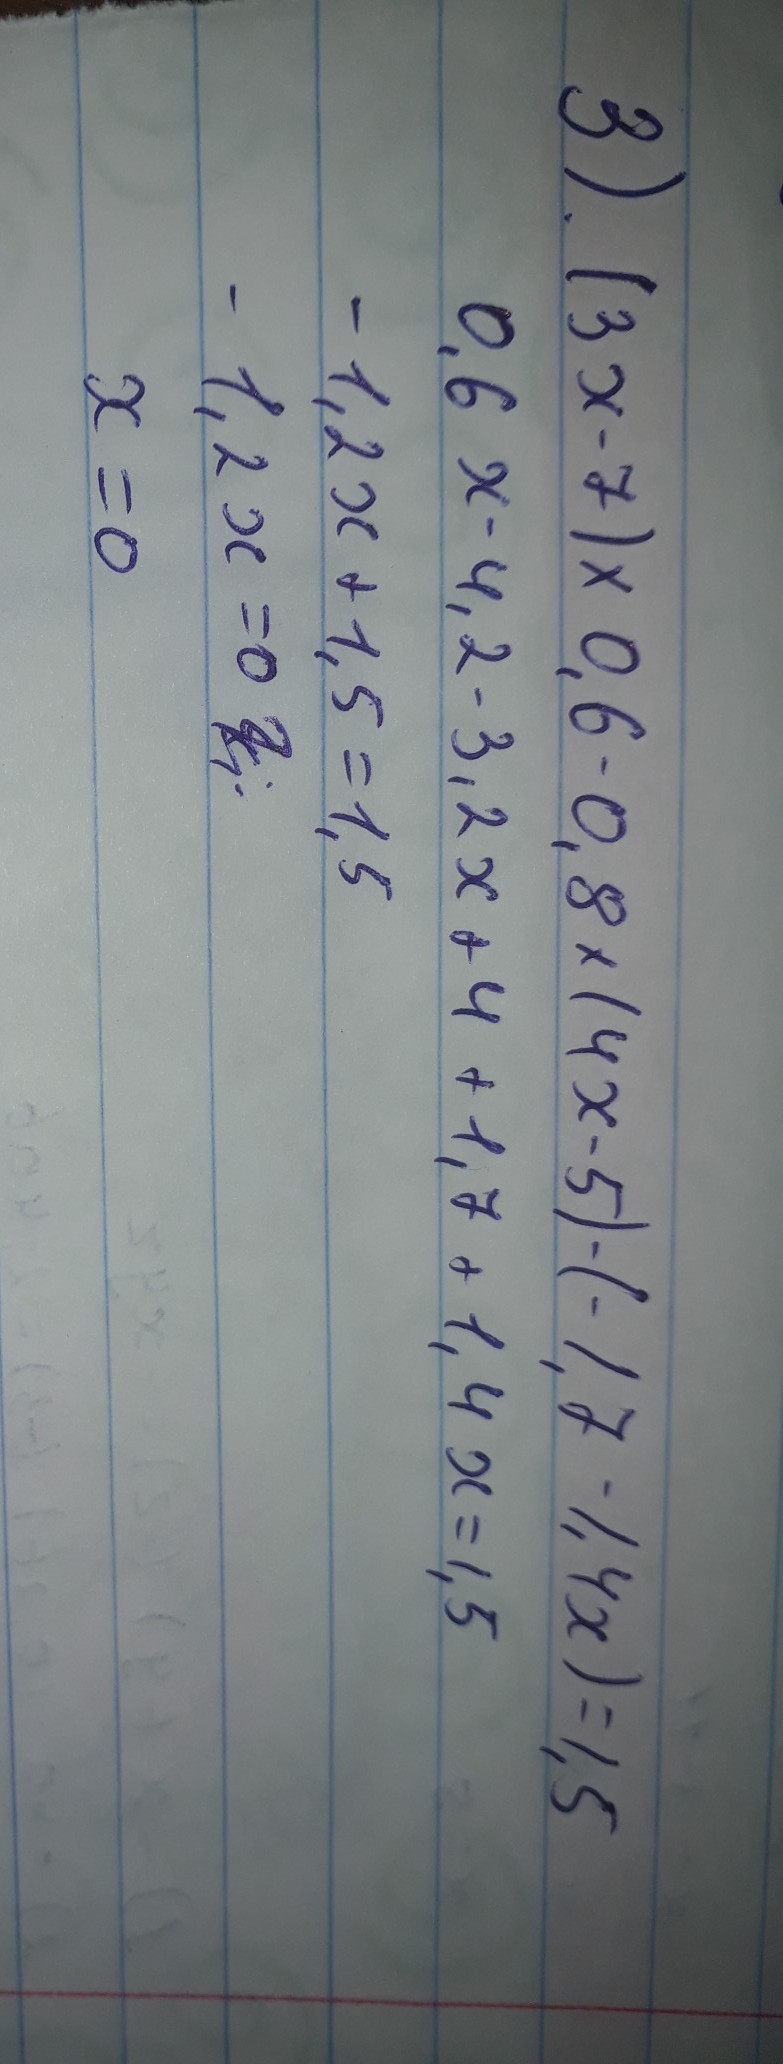 3). (3x-7)x 0,6-0,8x(4x-5)-(-1,7-1,4x)=1,5
0,6x-4,2-3,2x+4+1,7+1,4x=1,5
-1,2x+1,5=1,5
-1,2x=0
x=0